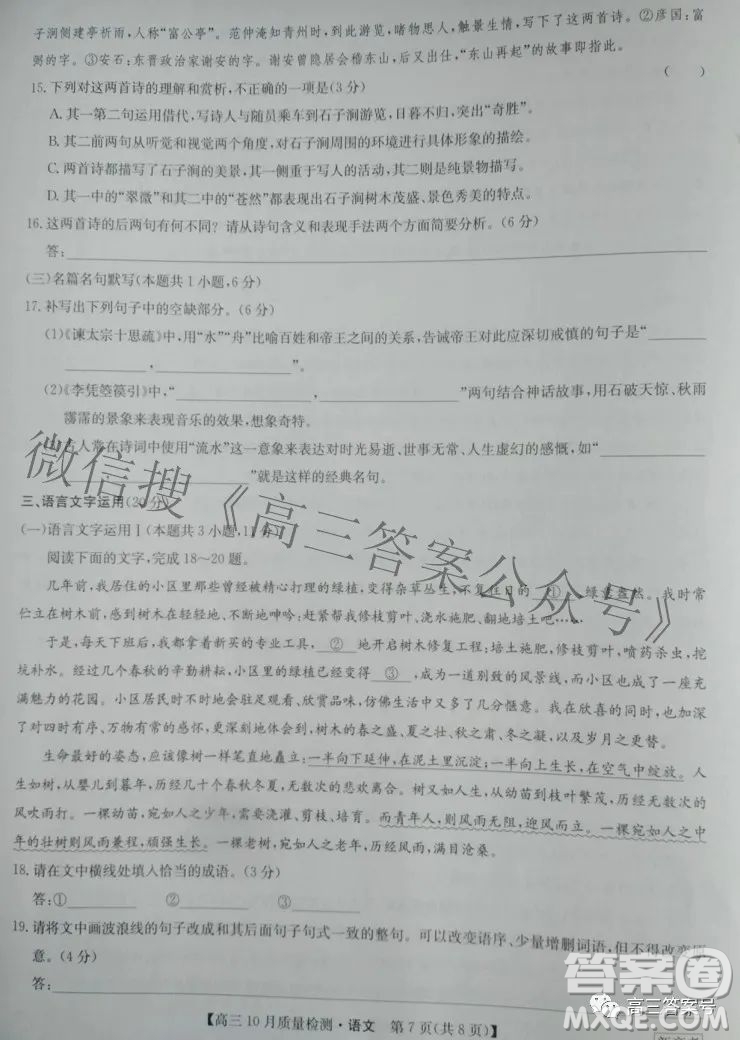 子涧侧建亭祈雨，人称“富公亭”。范仲淹知青州时，到此游览，睹物思人，触景生情，写下了这两首诗。②彦国：富
弼的字。③安石：东晋政治家谢安的字。谢安曾隐居会稽东山，后又出仕，“东山再起”的故事即指此。
15.下列对这两首诗的理解和赏析，不正确的一项是(3分) （　　）
A.其一第二句运用借代，写诗人与随员乘车到石子涧游览，日暮不归，突出“奇胜”。
B.其二前两句从听觉和视觉两个角度，对石子涧周围的环境进行具体形象的描绘。
C.两首诗都描写了石子涧的美景，其一侧重于写人的活动，其二则是纯景物描写。
D.其一中的“翠微”和其二中的“苍然”都表现出石子涧树木茂盛、景色秀美的特点。
16.这两首诗的后两句有何不同？请从诗句含义和表现手法两个方面简要分析。(6分)
答：
(三)名篇名句默写(本题共1小题，6分)
17.补写出下列句子中的空缺部分。(6分)
(1)《谏太宗十思疏》中，用“水”“舟”比喻百姓和帝王之间的关系，告诫帝王对此应深切戒慎的句子是“
，　　　”。
(2)《李凭箜篌引》中，“　　　，　　　”两句结合神话故事，用石破天惊、秋雨
霶霈的景象来表现音乐的效果，想象奇特。
古人常在诗词中使用“流水”这一意象来表达对时光易逝、世事无常、人生虚幻的感慨，如“
，　　　”就是这样的经典名句。
三、语言文字运用(20分)
(一)语言文字运用Ⅰ(本题共3小题，11分)
阅读下面的文字，完成18～20题。
几年前，我居住的小区里那些曾经被精心打理的绿植，变得杂草丛生，不复往日的 ① 、绿意盎然。我时常
伫立在树木前，仿佛树木在轻轻地、不断地呻吟：赶紧帮我修枝剪叶、浇水施肥、翻地培土吧……
于是，每天下班，我都举着新买的专业工具， ② 地开启树木修复工程；修枝剪叶，喷药杀虫，挖
坑补水。经过几个春秋的辛勤耕耘，小区里的绿植已经 ③ ，成为一道别致的风景线，而小区也成了一座充
满魅力的花园。小区居民观看、欣赏品味，仿佛生活中又多了几分惬意。我在欣喜的同时，也収获了
对四时有序、万物有常的感怀，更深刻地体会到，树木的春之盛、夏之壮、秋之肃、冬之藏，一如生命的发展。
生命最好的姿态，应该像树一样笔直地矗立：一半向下延伸，在泥土里沉淀；一半向上生长，在空气中绽放。人
生如树，从婴儿到暮年，历经几十个春秋冬夏，无数次的悲欢离合。树如人生，从幼苗到枝叶繁茂，历经无数次的
风吹雨打。一棵幼苗，宛如人之少年，需要浇灌、剪枝、培育。而青年人，则风雨无阻，迎风而立。一棵宛如人之中
年的壮树则风雨兼程，顽强生长。一棵老树，宛如人之老年，历经风雨，满目沧桑。
18.请在文中横线处填入恰当的成语。(3分)
答：①　　　②　　　③
19.请将文中画波浪线的句子改成和其后面句子句式一致的整句。可以改变语序、少量增删词语，但不得改变原
意。(4分)
答：
【高三10月质量检测·语文　第7页(共8页)】
微信搜《高三答案公众号》
答案圈
MXQE.COM
高三答案号